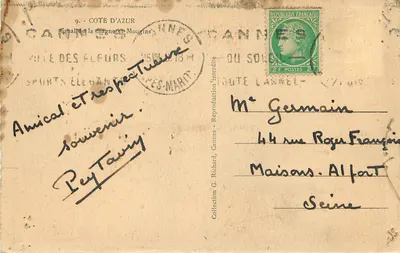 9. - COTE D'AZUR
CANNES
VILLE DES FLEURS
SPORTS ELEGANTS
CANNES
ALPES-MARIT
CANNES
DU SOLEIL
TOUTE L'ANNEE
POSTES
Amical et respectueux
souvenir
PeyTavin
Collection G. Richard, Cannes
Mr Germain
44 rue Roger François
Maisons-Alfort
Seine